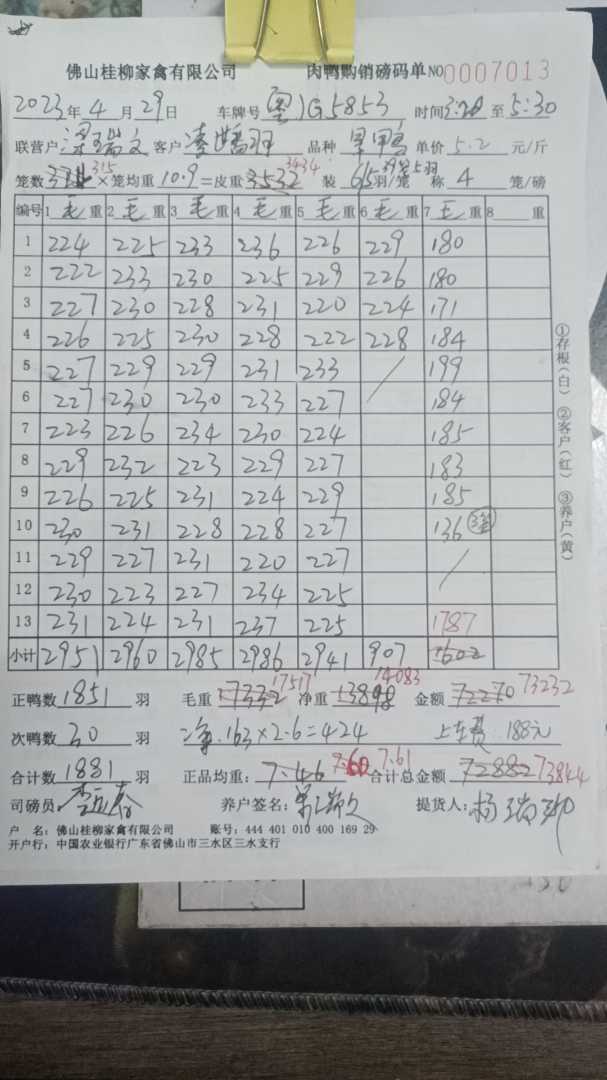 佛山桂柳家禽有限公司 肉鸭购销磅码单 NO 0007013
2023年 4 月 29日 车牌号 粤JG5853 时间3:20 至 5:30
联营户 梁瑞文 客户 品种 单价 5.2 元/斤
笼数 315 ×笼均重 10.9 =皮重 3532 3434 装 6 羽/笼 称 4 笼/磅
编号 1 毛 重 2 毛 重 3 毛 重 4 毛 重 5 毛 重 6 毛 重 7 毛 重 8 重
1 224 225 233 236 226 229 180
2 222 233 230 225 229 226 180
3 227 230 228 231 220 224 171
4 226 225 230 228 222 228 184
5 227 229 229 231 233 / 199
6 227 230 230 233 227 184
7 223 226 234 230 224 185
8 229 232 223 229 227 183
9 226 225 231 224 229 185
10 230 231 228 228 227 136 3笼
11 229 227 231 220 227 /
12 230 223 227 234 225
13 231 224 231 237 225 1787
小计 2951 2960 2985 2986 2941 907 1602
①存根(白) ②客户(红) ③养户(黄)
正鸭数 1851 羽 毛重 17332 17517 净重 13898 14083 金额 72270 73232
次鸭数 30 羽 净.163×2.6=424 上车费 188元
合计数 1881 羽 正品均重: 7.46 7.60 7.61 合计总金额 72882 73844
司磅员 养户签名: 提货人:
户 名: 佛山桂柳家禽有限公司 账号: 444 401 010 400 169 29
开户行: 中国农业银行广东省佛山市三水区三水支行